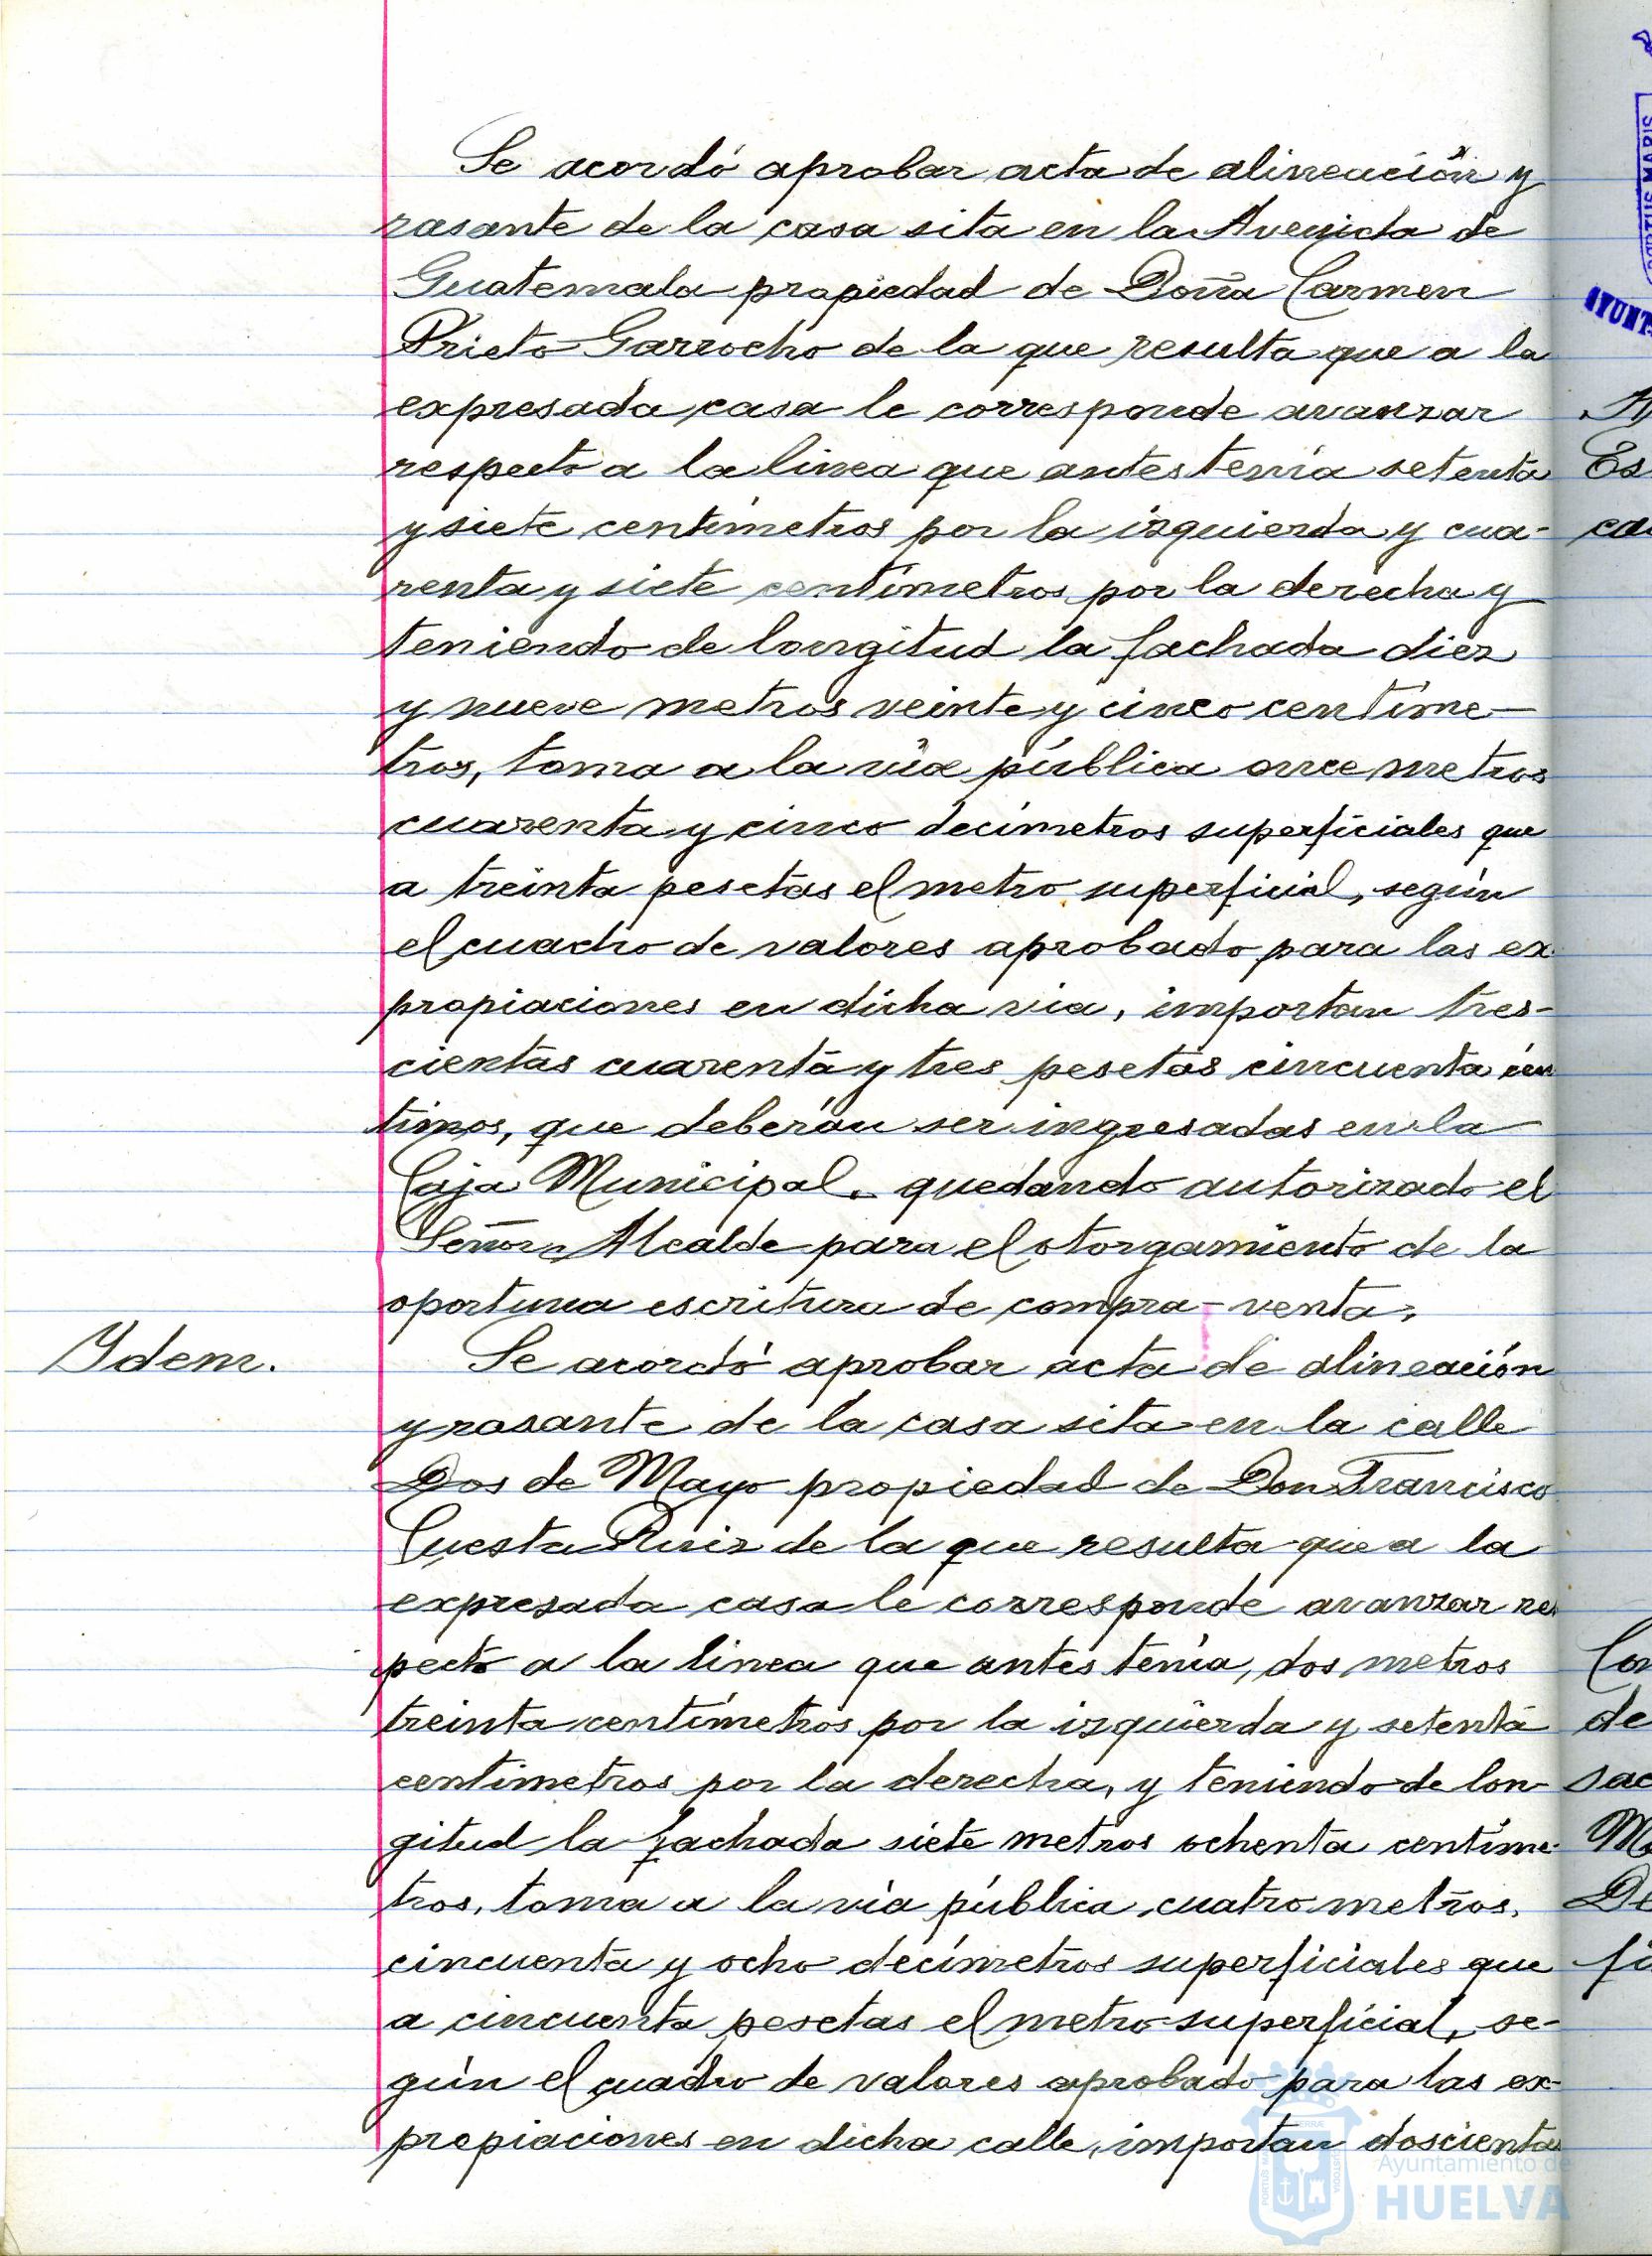 Se acordó aprobar acta de alineación y
rasante de la casa sita en la Avenida de
Guatemala propiedad de Doña Carmen
Prieto Garrocho de la que resulta que a la
expresada casa le corresponde avanzar
respecto a la linea que antes tenía setenta
y siete centímetros por la izquierda y cua-
renta y siete centímetros por la derecha y
teniendo de longitud la fachada diez
y nueve metros veinte y cinco centíme-
tros, toma a la vía pública once metros
cuarenta y cinco decímetros superficiales que
a treinta pesetas el metro superficial, según
el cuadro de valores aprobado para las ex-
propiaciones en dicha via, importan tres-
cientas cuarenta y tres pesetas cincuenta cén
timos, que deberán ser ingresadas en la
Caja Municipal. quedando autorizado el
Señor Alcalde para el otorgamiento de la
oportuna escritura de compra-venta.
Ydem.
Se acordó aprobar acta de alineación
y rasante de la casa sita en la calle
Dos de Mayo propiedad de Don Francisco
Cuesta Ruiz de la que resulta que a la
expresada casa le corresponde avanzar res
pecto a la linea que antes tenía, dos metros
treinta centímetros por la izquierda y setenta
centímetros por la derecha, y teniendo de lon-
gitud la fachada siete metros ochenta centíme-
tros, toma a la vía pública, cuatro metros,
cincuenta y ocho decímetros superficiales que
a cincuenta pesetas el metro superficial, se-
gún el cuadro de valores aprobado para las ex-
propiaciones en dicha calle, importan doscientas
Ayuntamiento de
HUELVA